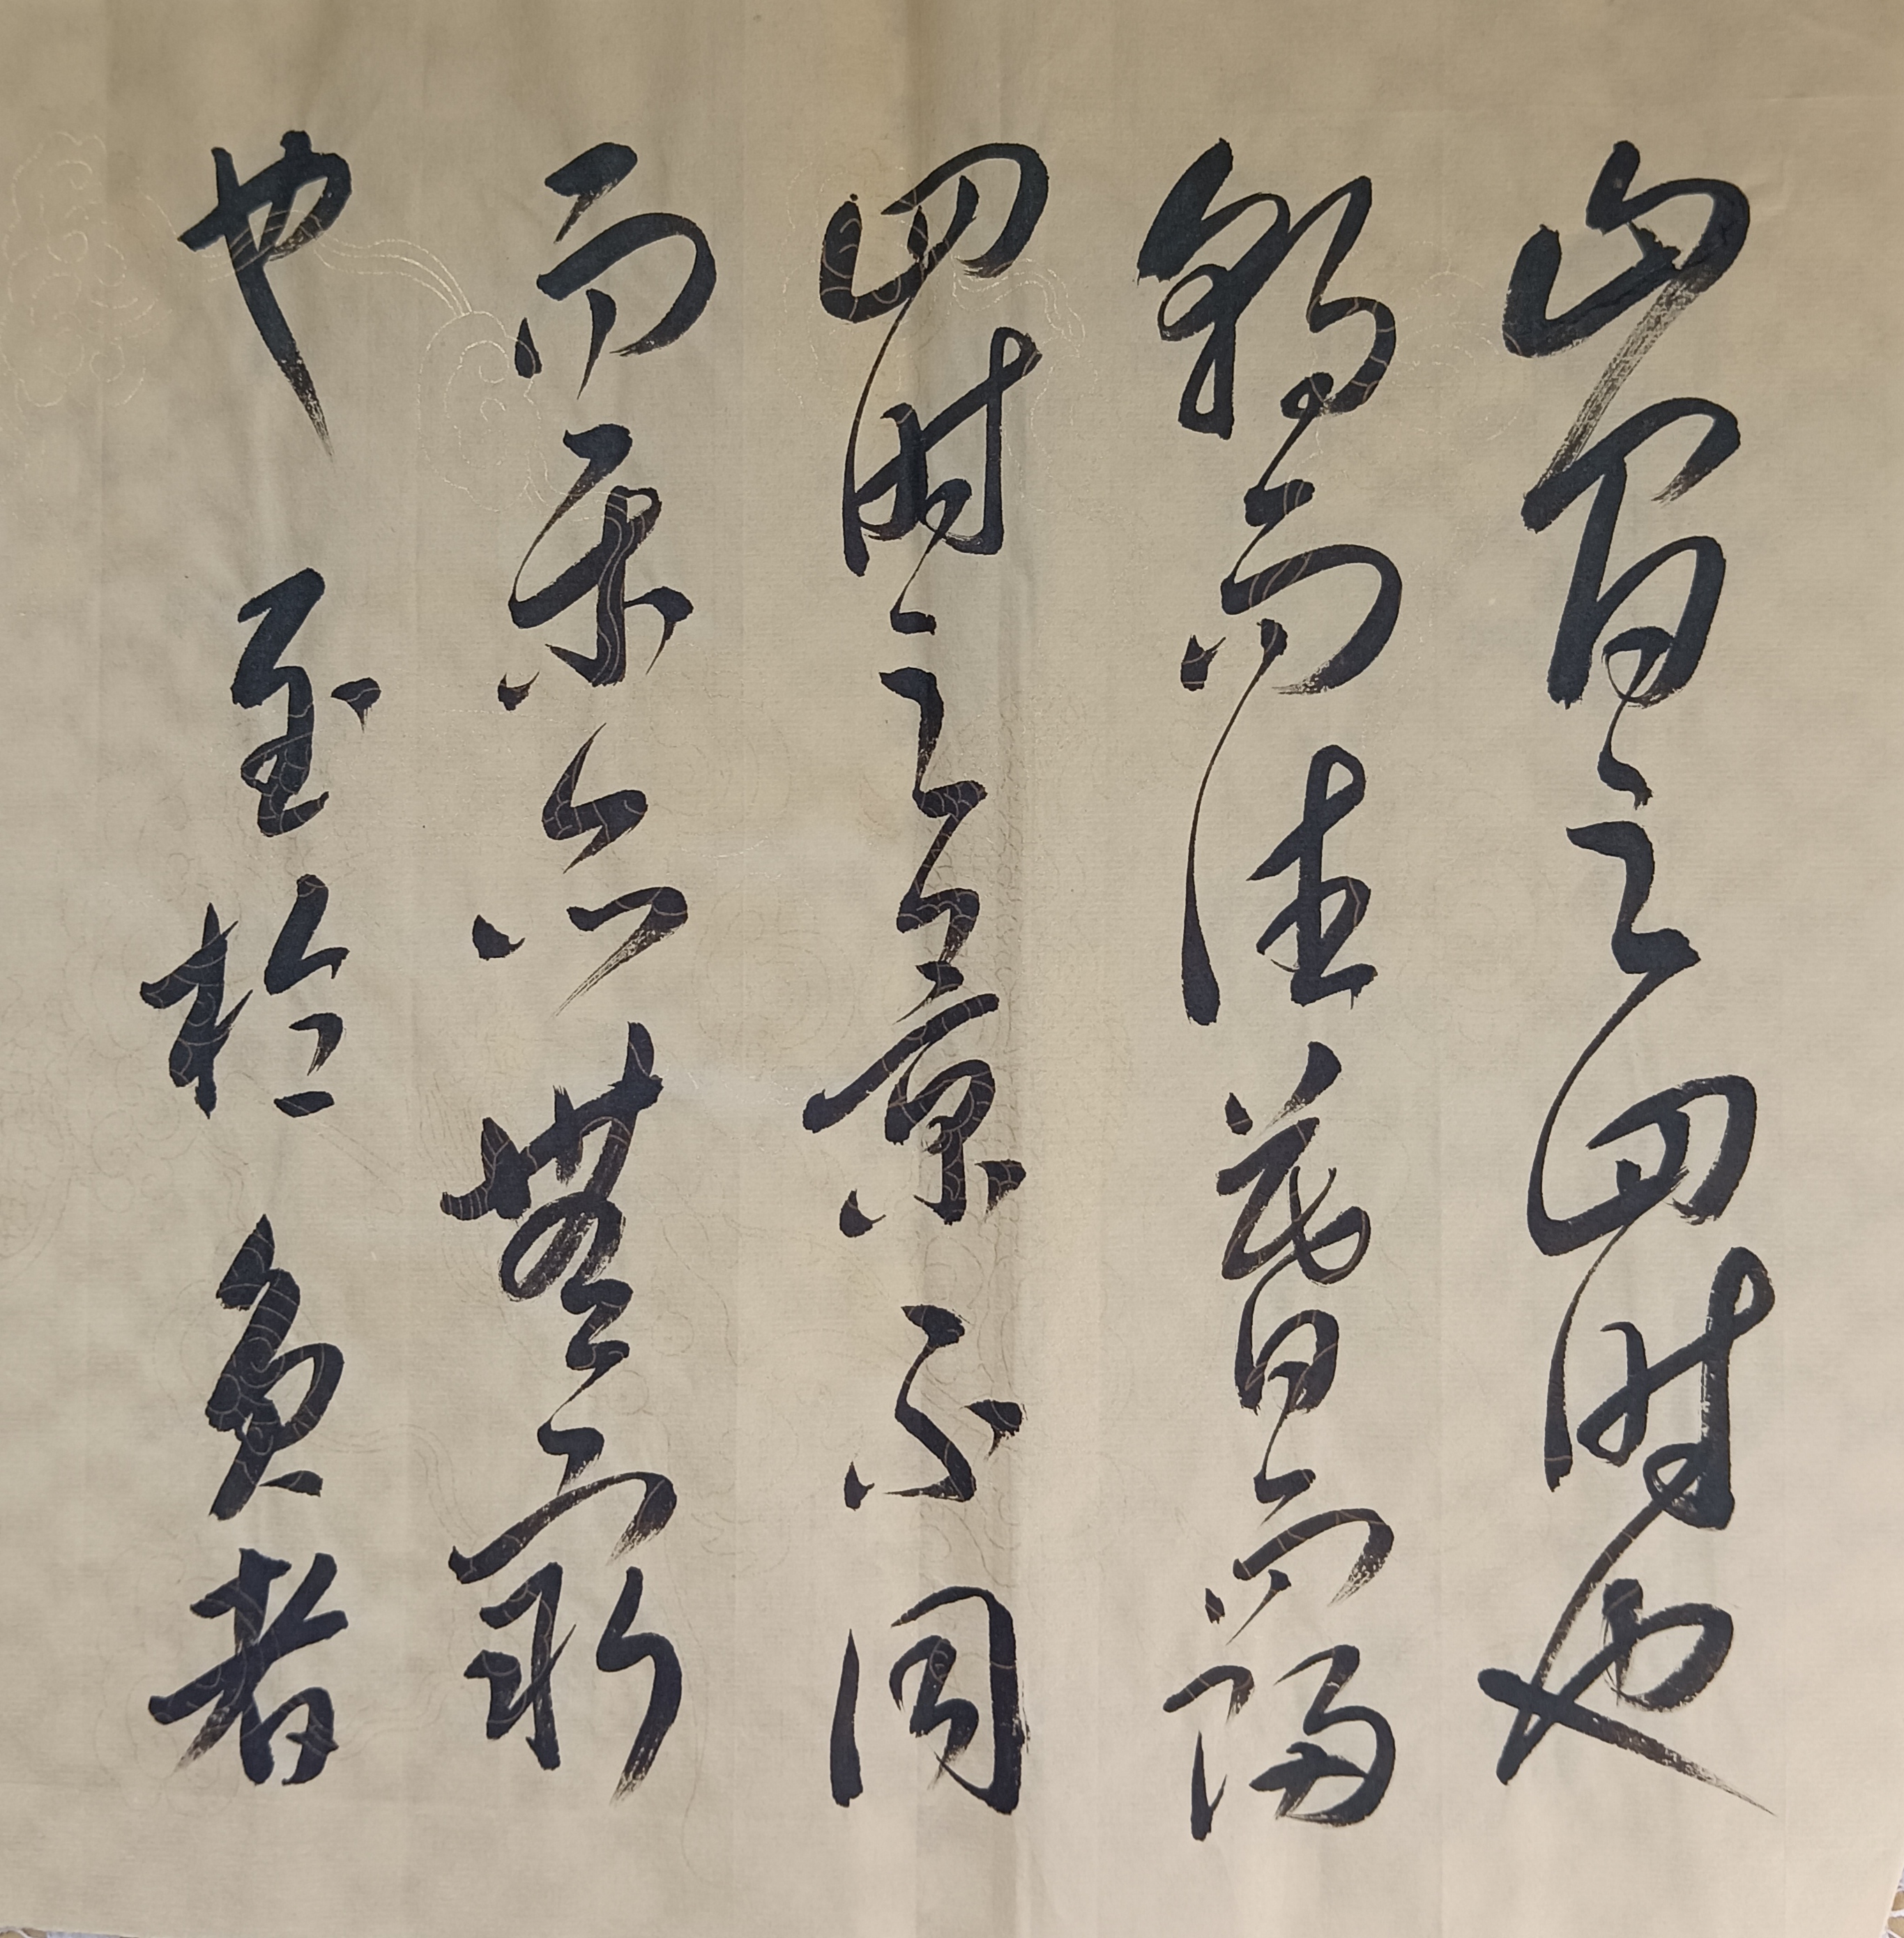 山間之四時也
朝而往暮而歸
四時之景不同
而樂亦無窮
也至於負者